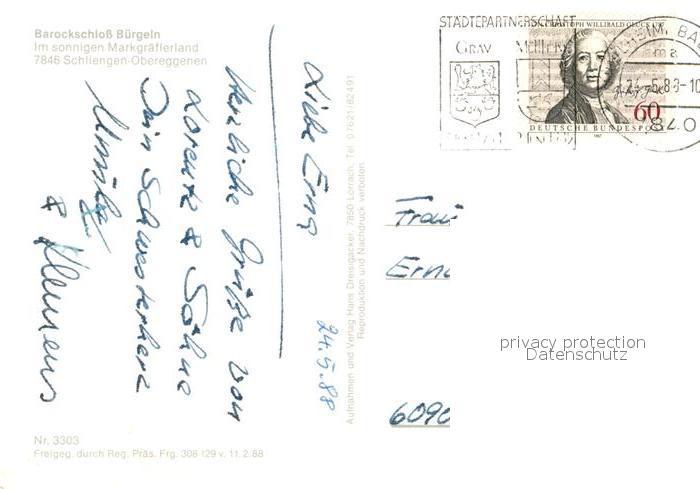 Barockschloß Bürgeln
Im sonnigen Markgräflerland
7846 Schliengen-Obereggenen
Liebe Erna
24.5.88
Herzliche Grüße von
Lorenz & Söhne
Dein Schwesterherz
Monika
& Klemens
Aufnahmen und Verlag Hans Dreisigacker, 7850 Lörrach, Tel. 07621/82491
Reproduktion und Nachdruck verboten
Nr. 3303
Freigeg. durch Reg. Präs. Frg. 308 129 v. 11.2.88
STÄDTEPARTNERSCHAFT
CHRISTOPH WILLIBALD GLUCK
60
DEUTSCHE BUNDESPOST
1987
Frau
Erna
6090
privacy protection
Datenschutz